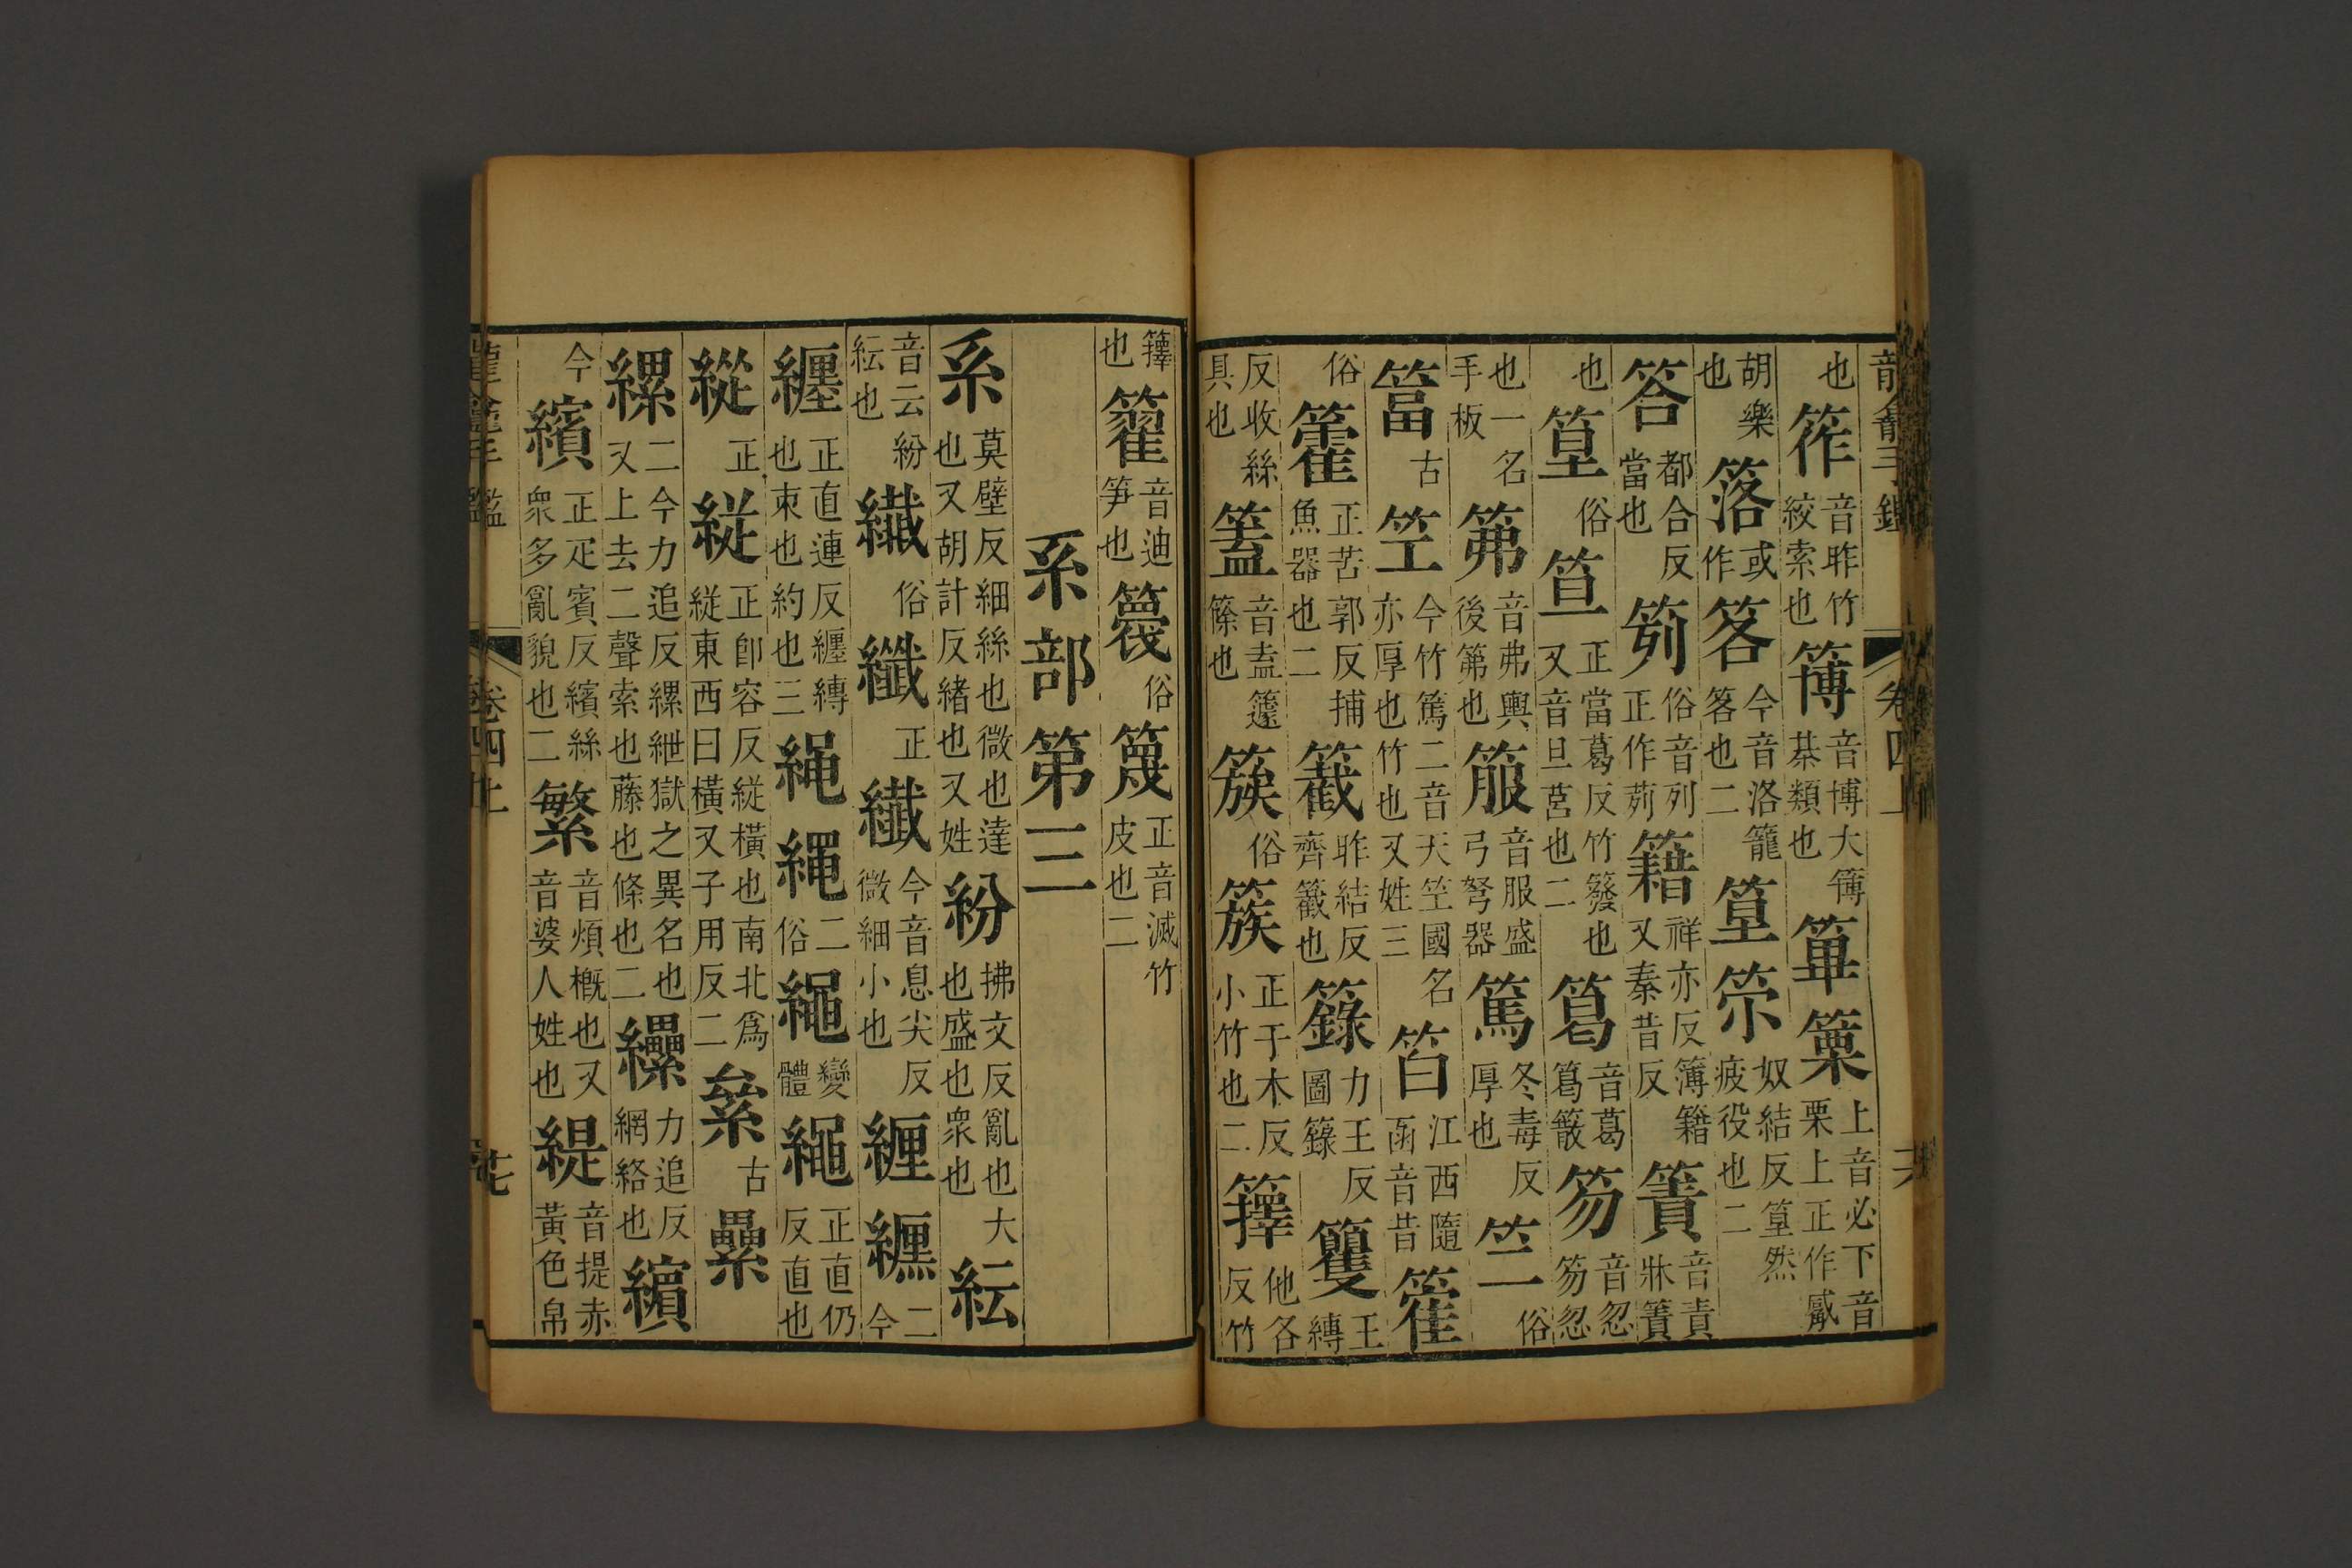 龍龕手鑑 卷四上 十六
也筰音昨竹絞索也簙音博大簿棊類也篳篥上音必下音栗上正作觱
胡樂也落或作笿今音洛籠笿也二篞苶奴結反篞然疲役也二
答都合反當也䇟俗音列正作茢籍祥亦反簿籍又秦昔反簀音責牀簀
也篞俗笪正當葛反竹籛也又音旦莒也二䈓音葛䈓簸笏音忽笏忽
也一名手板笰音弗輿後第也箙音服盛弓弩器篤冬毒反厚也竺俗
䈏古笁今竹篤二音天竺國名亦厚也竹也又姓三䈀江西隨函音昔䈷
俗籗正苦郭反捕魚器也二䉘昨結反齊䉘也籙力王反圖籙籰王縛
反收絲具也䈖音盍籧篨也䉜俗簇正千木反小竹也二籜他各反竹
籜也籊音迪笋也䉎俗篾正音滅竹皮也二
糸部第三
糸莫壁反細絲也微也達也又胡計反緒也又姓紛拂文反亂也大也盛也衆也紜
音云紛紜也纎俗纖正纎今音息尖反微細小也緾纒二今
纏正直連反纏縛也束也約也三䋲繩二俗繩變體繩正直仍反直也
縱正緃正即容反縱橫也南北爲縱東西曰橫又子用反二絫古纍
縲二今力追反縲紲獄之異名也又上去二聲索也藤也條也二纝力追反網絡也繽
今繽正疋賓反繽絲衆多亂貌也二繁音煩概也又音婆人姓也緹音提赤黃色帛
龍龕手鑑 卷四上 十七